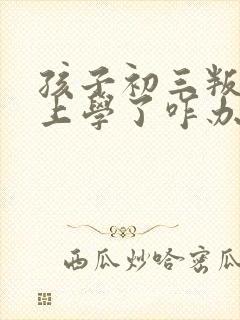 孩子初三叛
上學了咋办
西瓜炒哈密瓜